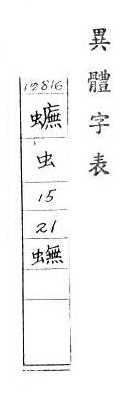 異體字表
12816
虫
15
21
蟱